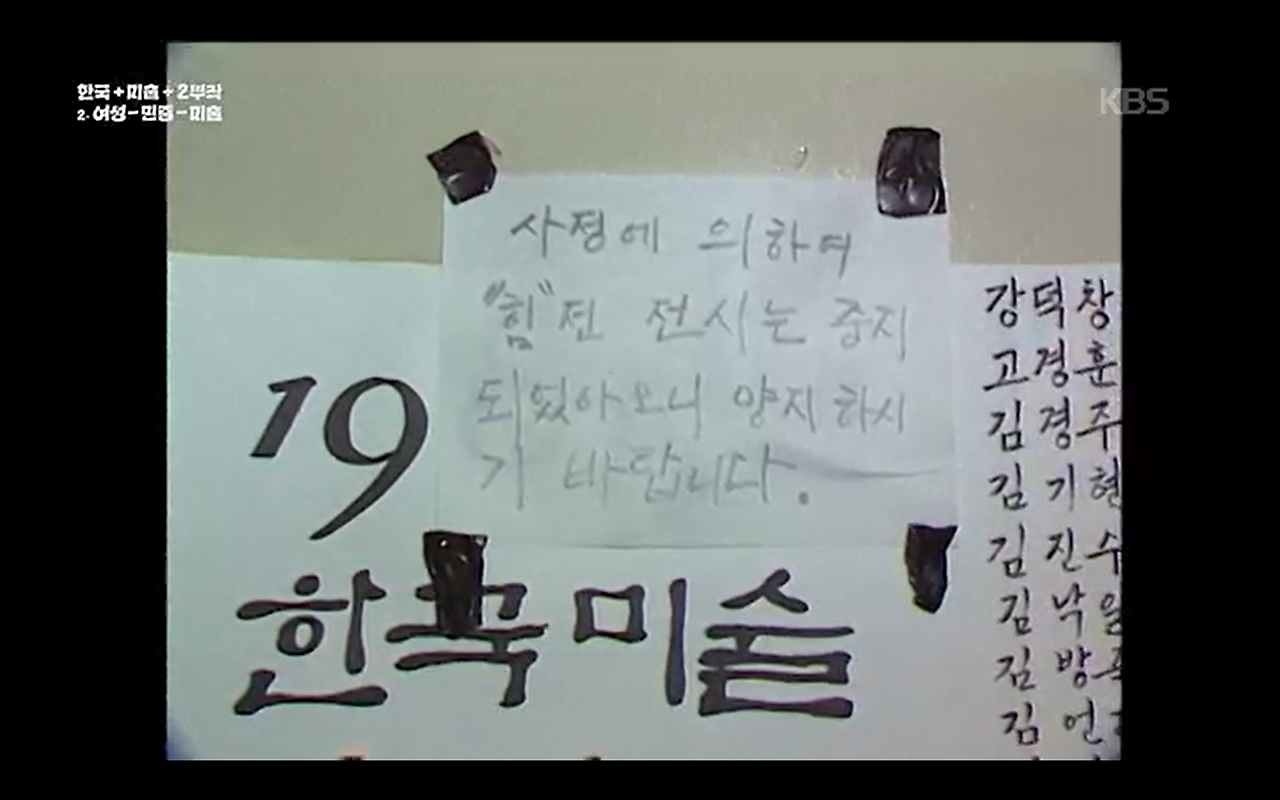 한국+미술+2부작
2. 여성-민중-미술
KBS
사정에 의하여
"힘"전 전시는 중지
되었아오니 양지하시
기 바랍니다.
19
한국미술
강덕창
고경훈
김경주
김기현
김진수
김낙일
김방
김언